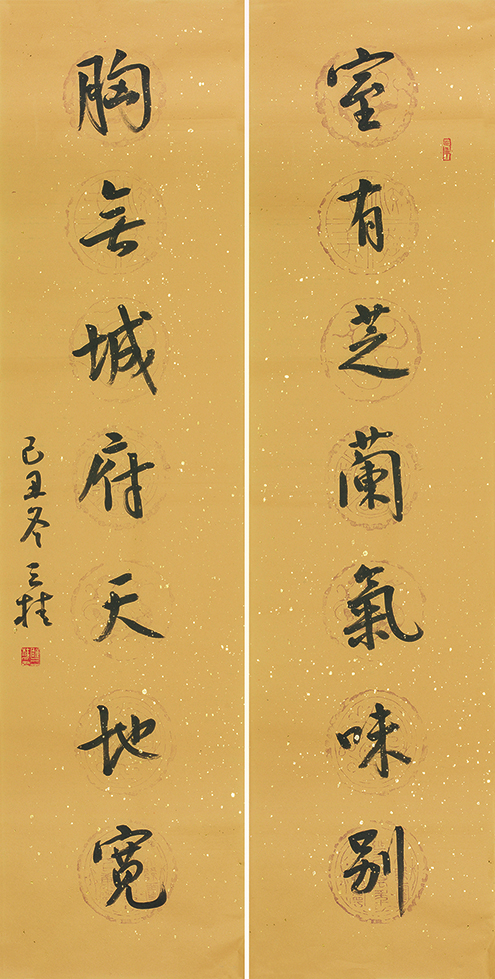 室有芝蘭氣味別
胸無城府天地寬
己丑冬三桂